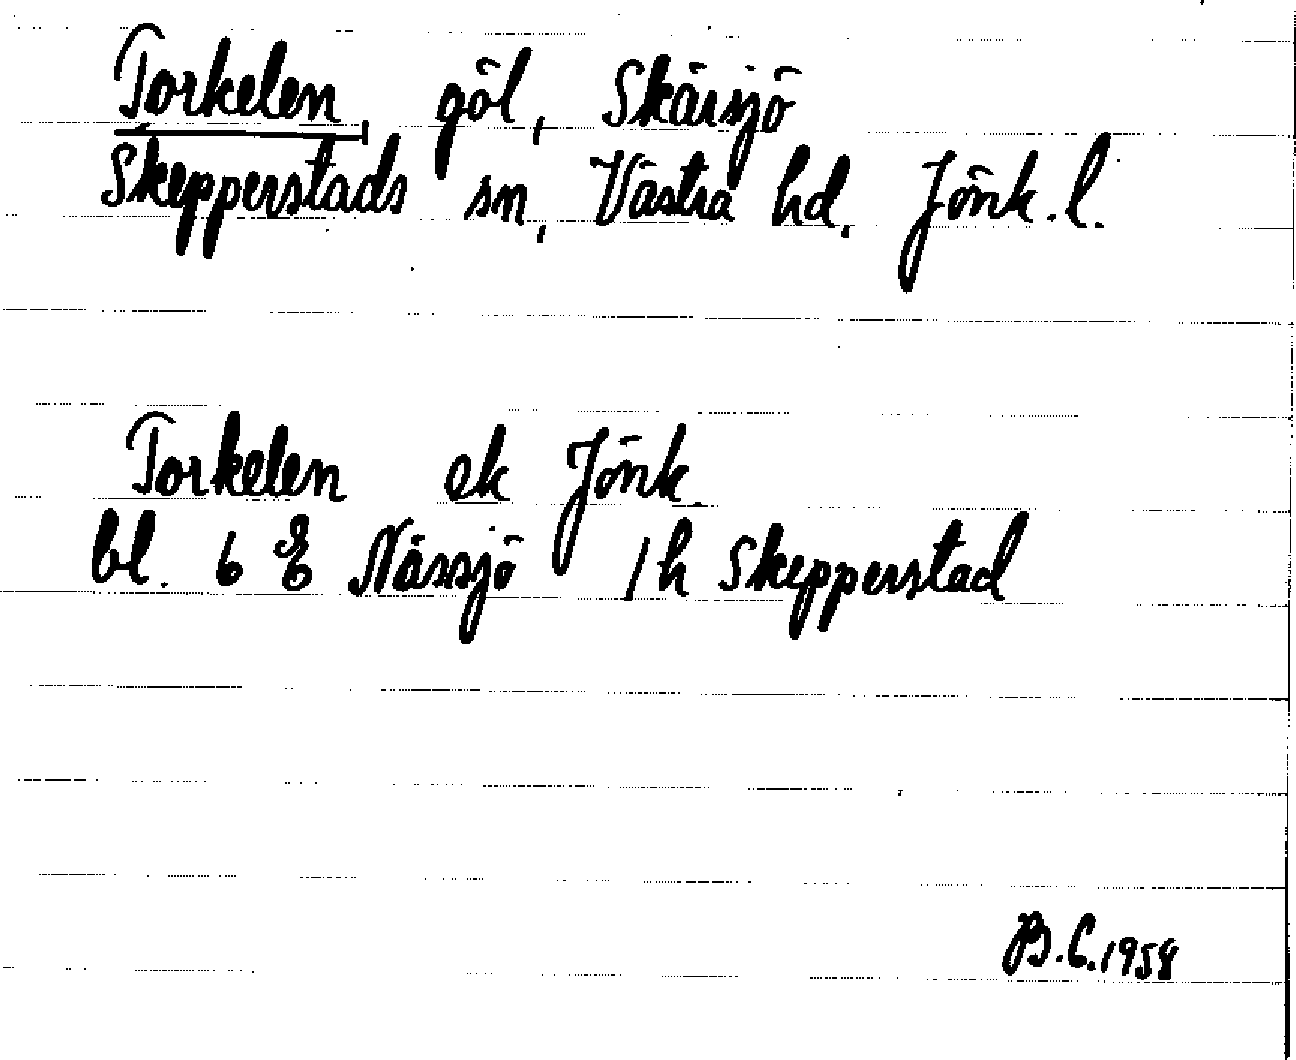 Torkelen, göl, Skärsjö
Skepperstads sn, Västra hd, Jönk. l.
Torkelen ek Jönk.
bl. 6 E Nässjö 1 h Skepperstad
B.C. 1958